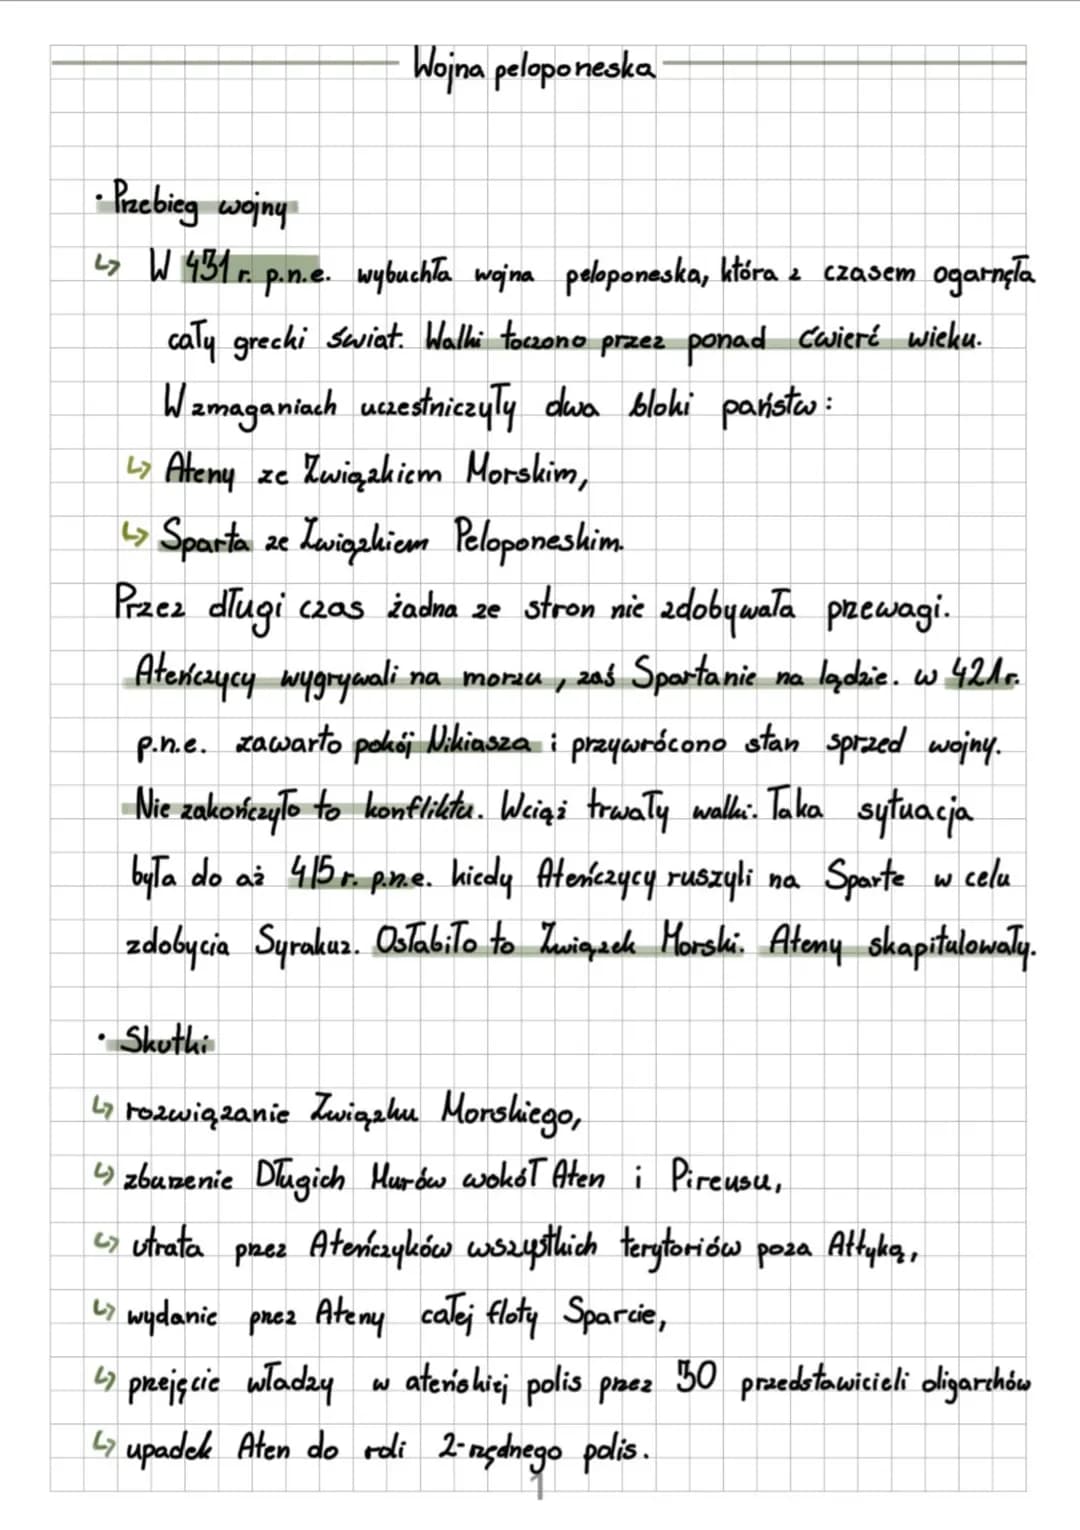 Wojna peloponeska
• Przebieg wojny
↳ W 431 r. p.n.e. wybuchła wojna peloponeska, która z czasem ogarnęła
cały grecki świat. Walki toczono przez ponad ćwierć wieku.
W zmaganiach uczestniczyły dwa bloki państw:
↳ Ateny ze Związkiem Morskim,
↳ Sparta ze Związkiem Peloponeskim.
Przez długi czas żadna ze stron nie zdobywała przewagi.
Ateńczycy wygrywali na morzu, zaś Spartanie na lądzie. w 421 r.
p.n.e. zawarto pokój Nikiasza i przywrócono stan sprzed wojny.
Nie zakończyło to konfliktu. Wciąż trwały walki. Taka sytuacja
była do aż 415 r. p.n.e. kiedy Ateńczycy ruszyli na Sparte w celu
zdobycia Syrakuz. Osłabiło to Związek Morski. Ateny skapitulowały.
• Skutki
↳ rozwiązanie Związku Morskiego,
↳ zburzenie Długich Murów wokół Aten i Pireusu,
↳ utrata przez Ateńczyków wszystkich terytoriów poza Attyką,
↳ wydanie przez Ateny całej floty Sparcie,
↳ przejęcie władzy w ateńskiej polis przez 30 przedstawicieli oligarchów
↳ upadek Aten do roli 2-rzędnego polis.
1